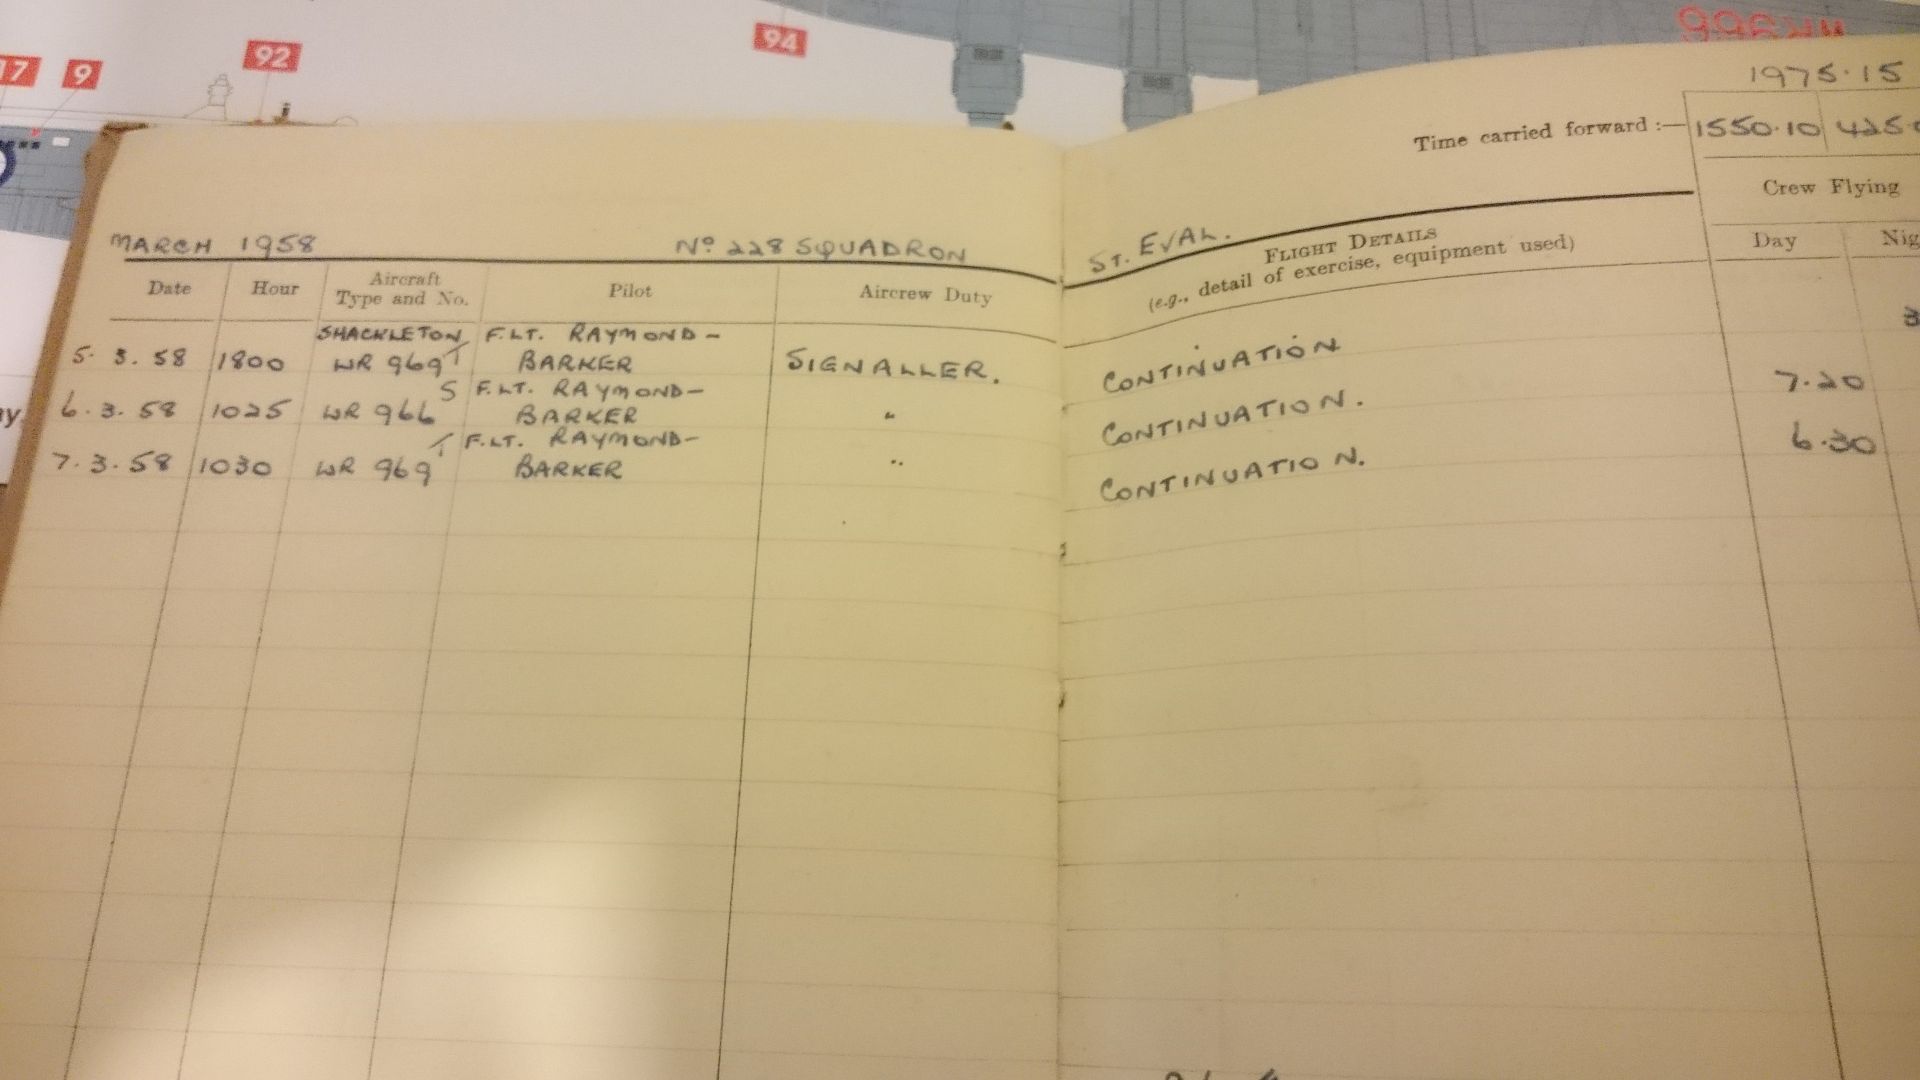 17
9
92
94
MARCH 1958
No 228 SQUADRON
Date
Hour
Aircraft
Type and No.
Pilot
Aircrew Duty
SHACKLETON
F.LT. RAYMOND-
5. 3. 58 1800 WR 969 T BARKER SIGNALLER.
S F.LT. RAYMOND-
6. 3. 58 1025 WR 966 BARKER "
T F.LT. RAYMOND-
7. 3. 58 1030 WR 969 BARKER "
1975.15
Time carried forward :— 1550.10
Crew Flying
ST. EVAL.
FLIGHT DETAILS
(e.g., detail of exercise, equipment used)
Day
CONTINUATION
CONTINUATION. 7.20
CONTINUATION. 6.30